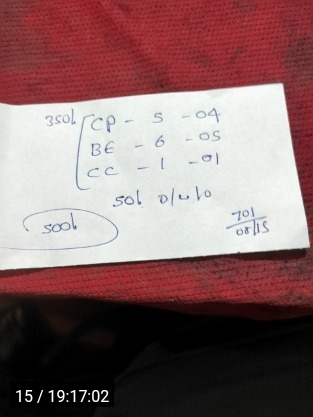 350/- CP - 5 - 04
BE - 6 - 05
CC - 1 - 01
50/-
500/-
701
08/15
15 / 19:17:02